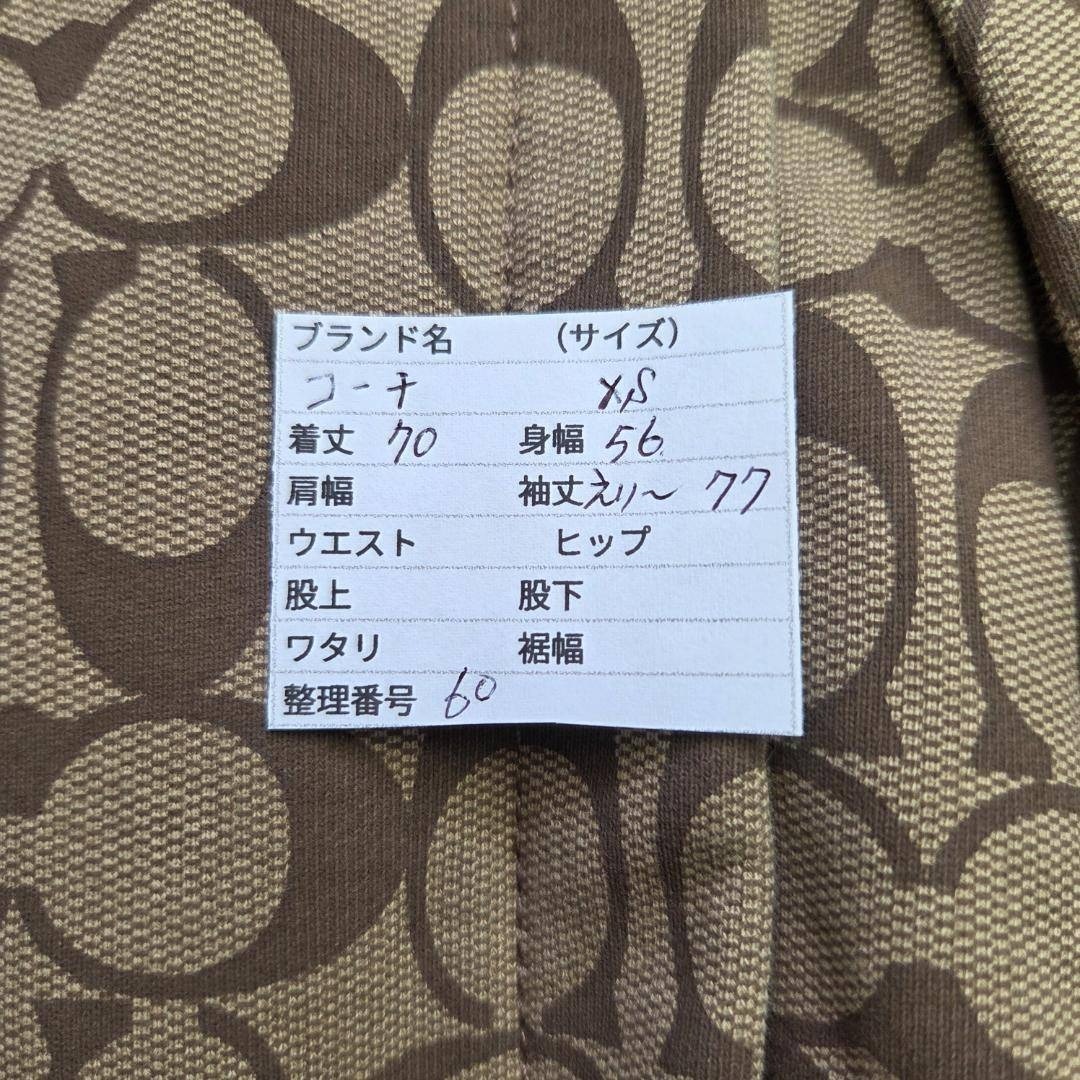 ブランド名 (サイズ)
コーチ XS
着丈 70 身幅 56
肩幅 袖丈えり〜 77
ウエスト ヒップ
股上 股下
ワタリ 裾幅
整理番号 60